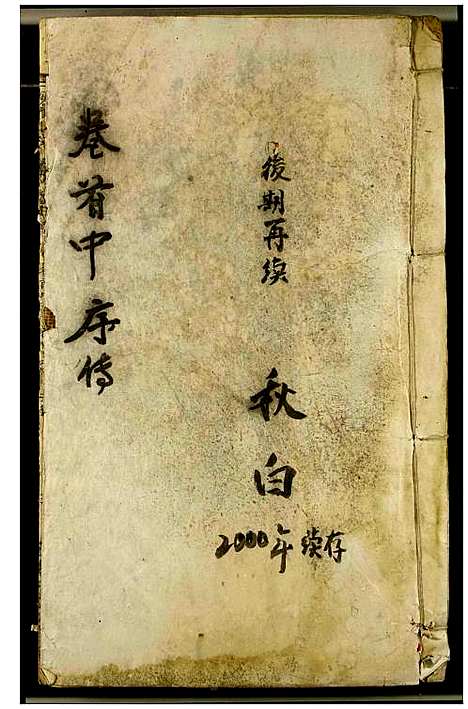 後期再续
秋白
2000年续存
卷首中序传